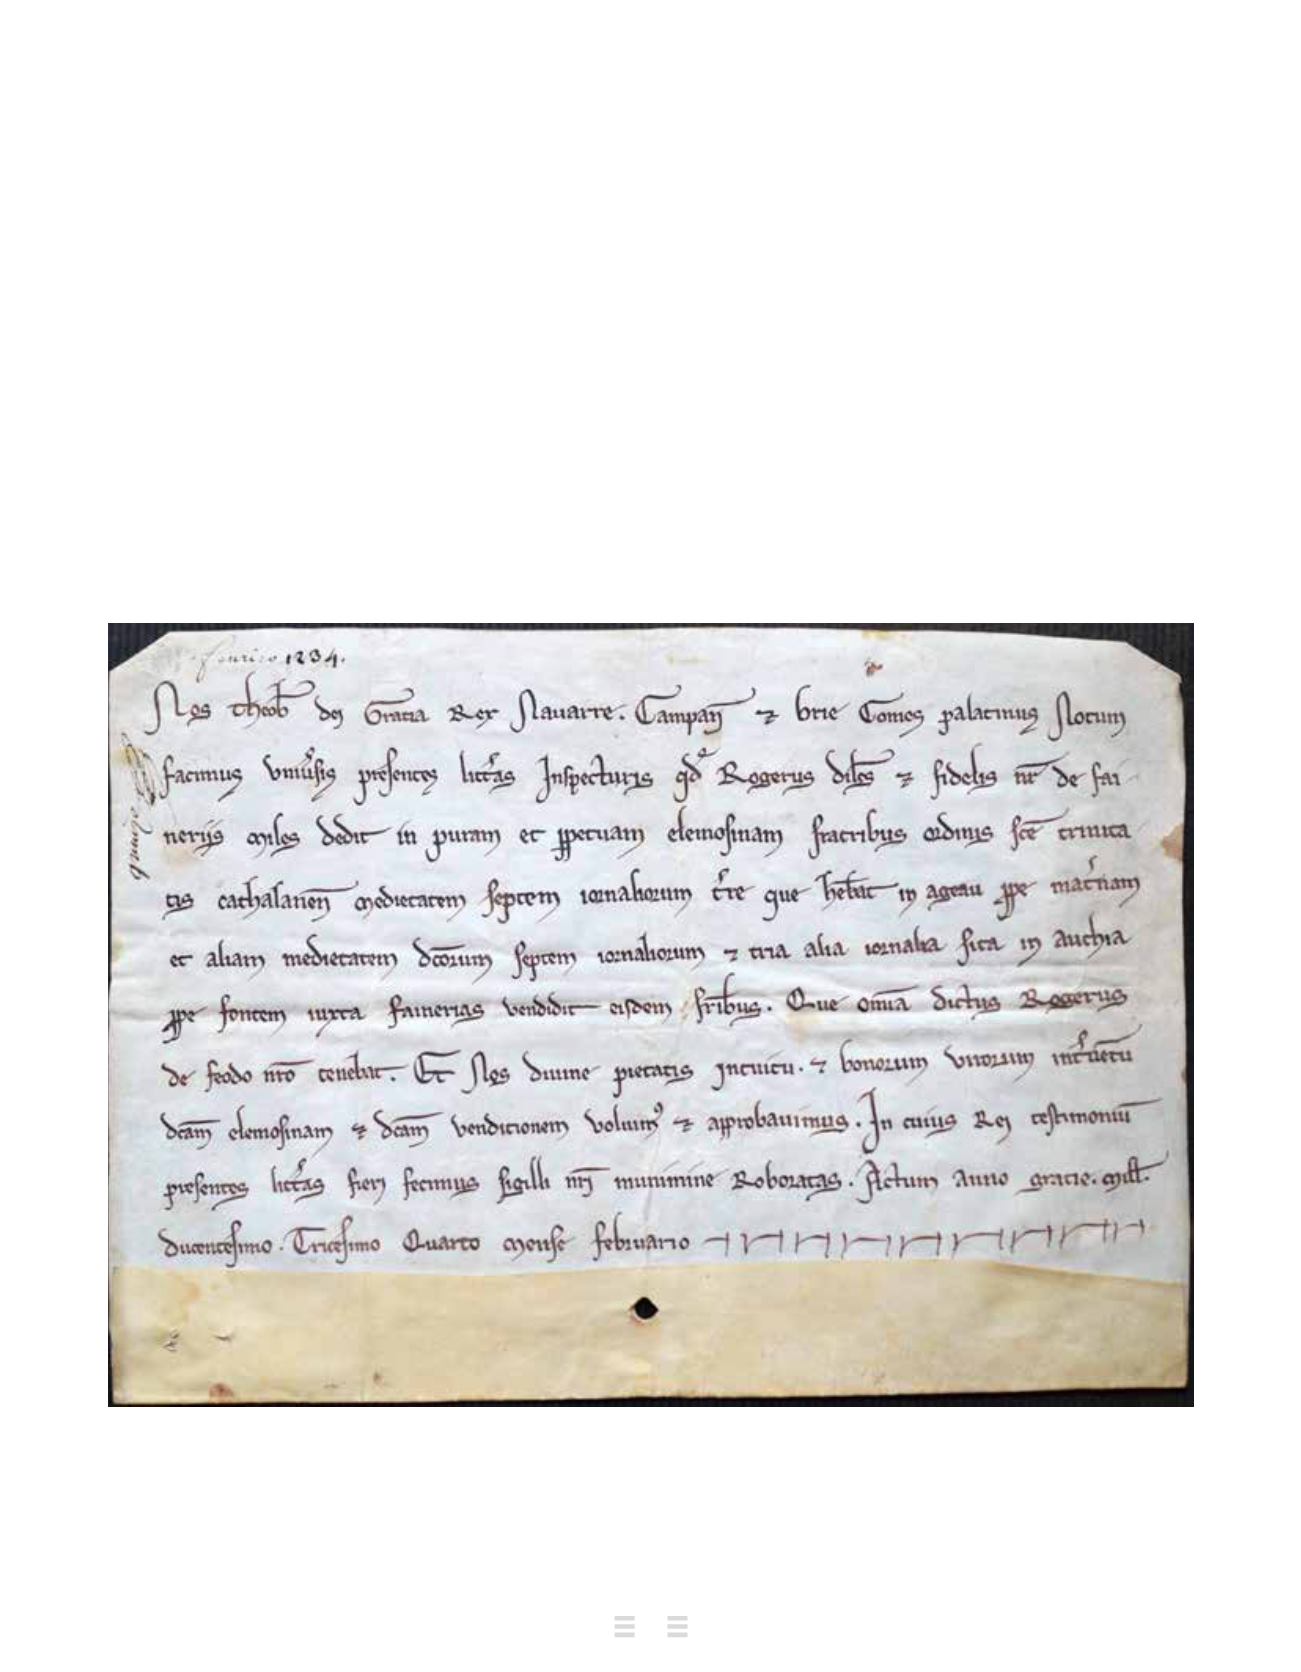 1234.
Nos theob dei Gratia Rex Nauarre. Campan ⁊ brie Comes palatinus Notum
facimus vniusis presentes litas Inspecturis qd Rogerus diles ⁊ fidelis nr de fai
nerijs miles dedit in puram et ppetuam elemosinam fratribus ordinis sce trinita
tis cathalanen medietatem septem iornaliorum tre que hebat in ageau ppe matnam
et aliam medietatem dcorum septem iornaliorum ⁊ tria alia iornalia sita in Auchia
ppe fontem iuxta fainerias vendidit eisdem fribus. Que omia dictus Rogerus
de feodo nro tenebat. Et Nos diuine pietatis Intuitu. ⁊ bonorum virorum
dcam elemosinam ⁊ dcam venditionem volumꝰ ⁊ approbauimus. In cuius Rei testimoniu
presentes litas fieri fecimus sigilli nri munimine Roboratas. Actum Anno gratie. mill.
ducentesimo. Tricesimo Quarto mense februario